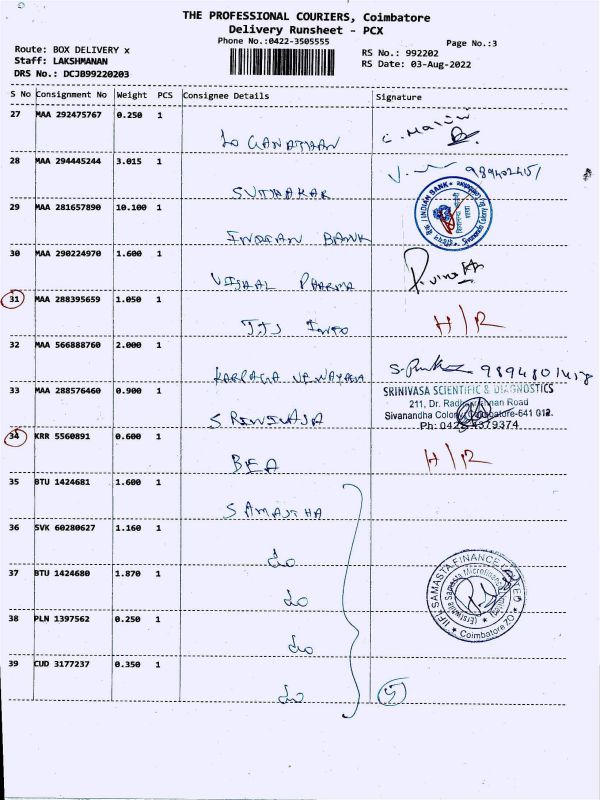 THE PROFESSIONAL COURIERS, Coimbatore
Delivery Runsheet - PCX
Phone No.:0422-3505555
Page No.:3
Route: BOX DELIVERY x
RS No.: 992202
Staff: LAKSHMANAN
RS Date: 03-Aug-2022
DRS No.: DCJB99220203
S No Consignment No Weight PCS Consignee Details Signature
27 MAA 292475767 0.250 1
LOGANATHAN
28 MAA 294445244 3.015 1
SUTHAKAR
29 MAA 281657890 10.100 1
INDIAN BANK
INDIAN BANK
30 MAA 290224970 1.600 1
VISHAL PHARMA
31 MAA 288395659 1.050 1
Info H/R
32 MAA 566888760 2.000 1
33 MAA 288576460 0.900 1
SRINIVASA SCIENTIFIC & DIAGNOSTICS
211, Dr. Radhakrishnan Road
Sivanandha Colony, Coimbatore-641 012.
34 KRR 5560891 0.600 1
BEA H/R
35 BTU 1424681 1.600 1
SAMASTHA
36 SVK 60280627 1.160 1
do
37 BTU 1424680 1.870 1
do
IIFL SAMASTA FINANCE LIMITED
(Erstwhile Samasta Microfinance Limited)
Coimbatore ZO
38 PLN 1397562 0.250 1
do
39 CUD 3177237 0.350 1
do 5